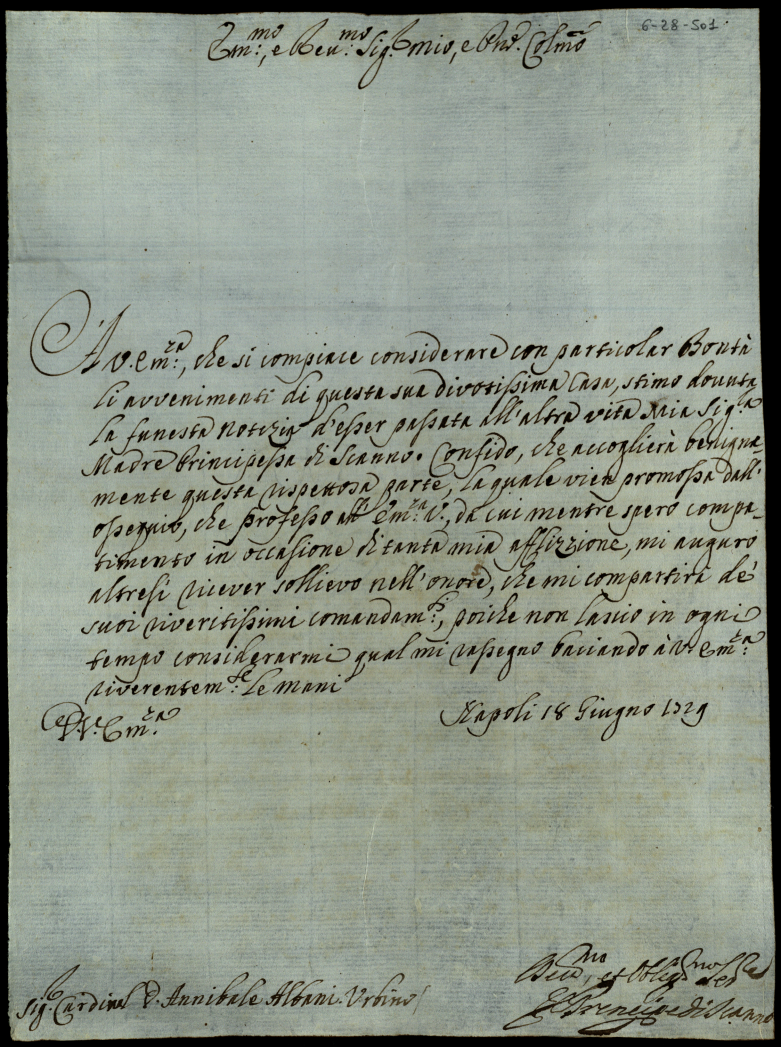 6-28-501
Em.mo, e Reu.mo Sig.r mio, e Pnē. Colmō
A V. Em.za, che si compiace considerare con particolar Bontà
li avvenimenti di questa sua divotissima Casa, stimo douuta
la funesta notizia d'esser passata all'altra vita Mia Sig.ra
Madre Principessa di Scanno. Confido, che accoglierà benigna-
mente questa rispettosa parte, la quale vien promossa dall'
ossequio, che professo all' Em.za V., da cui mentre spero compa-
timento in occasione di tanta mia afflizzione, mi auguro
altresì ricever sollievo nell'onore, che mi compartirà de'
suoi riveritissimi comandam.ti, poiche non lascio in ogni
tempo considerarmi qual mi rassegno baciando à V. Em.za
riverentem.te le mani
Napoli 18 Giugno 1729
D. V. Em.za
Sig.r Cardinal D. Annibale Albani. Urbino
Diu.mo, et Oblig.mo Ser.
Il Principe di Scanno